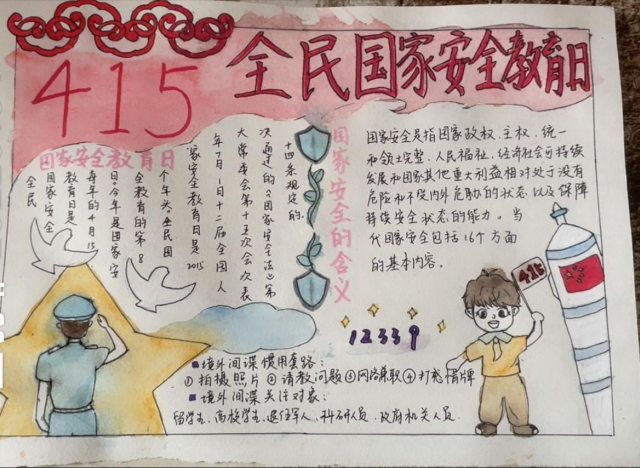 415
全民国家安全教育日
国家安全教育日
全民
国家安全
教育日是
每年的4月15
日。今年是国家安
全教育的第8
个年头全民国
家安全教育日是2015
年7月1日十二届全国人
大常委会第十五次会议表
次通过的《国家安全法》第
十四条规定的
国家安全的含义
国家安全是指国家政权、主权、统一
和领土完整、人民福祉、经济社会可持续
发展和国家其他重大利益相对处于没有
危险和不受内外危胁的状态以及保障
持续安全状态的能力。当
代国家安全包括16个方面
的基本内容。
415
12339
境外间谍惯用套路:
①拍摄照片②请教问题③网络兼职④打感情牌
境外间谍关注对象:
留学生、高校学生、退伍军人、科研人员、政府机关人员